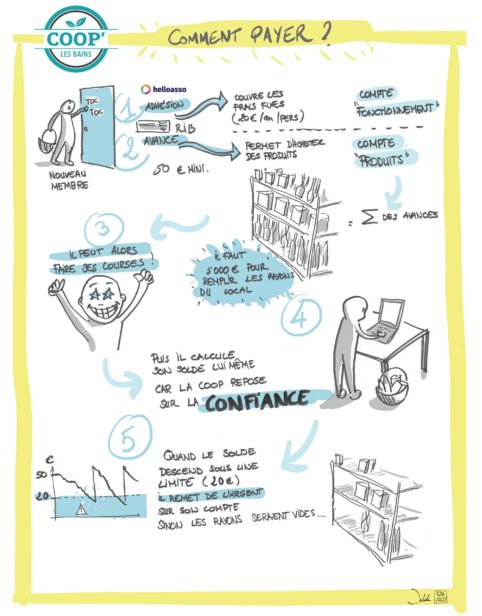 COOP'
LES BAINS
COMMENT PAYER ?
TOC
TOC
NOUVEAU
MEMBRE
1
helloasso
ADHÉSION
COUVRE LES
FRAIS FIXES
(20€/an/PERS)
COMPTE
"FONCTIONNEMENT"
2
RIB
AVANCE
50 € MINI.
PERMET D'ACHETER
DES PRODUITS
COMPTE
"PRODUITS"
= Σ DES AVANCES
3
IL PEUT ALORS
FAIRE SES COURSES !
IL FAUT
5000€ POUR
REMPLIR LES RAYONS
DU LOCAL
4
PUIS IL CALCULE
SON SOLDE LUI MÊME
CAR LA COOP REPOSE
SUR LA CONFIANCE
5
€
50
20
QUAND LE SOLDE
DESCEND SOUS UNE
LIMITE (20€)
IL REMET DE L'ARGENT
SUR SON COMPTE
SINON LES RAYONS SERAIENT VIDES...